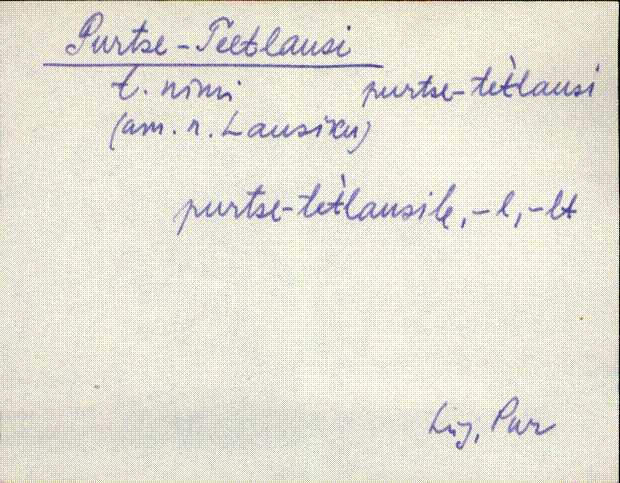 Purtse-Teetlausi
t. nimi purtse-tètlausi
(am. n. Lausiku)
purtse-tètlausile, -l, -lt
Lüg, Pur